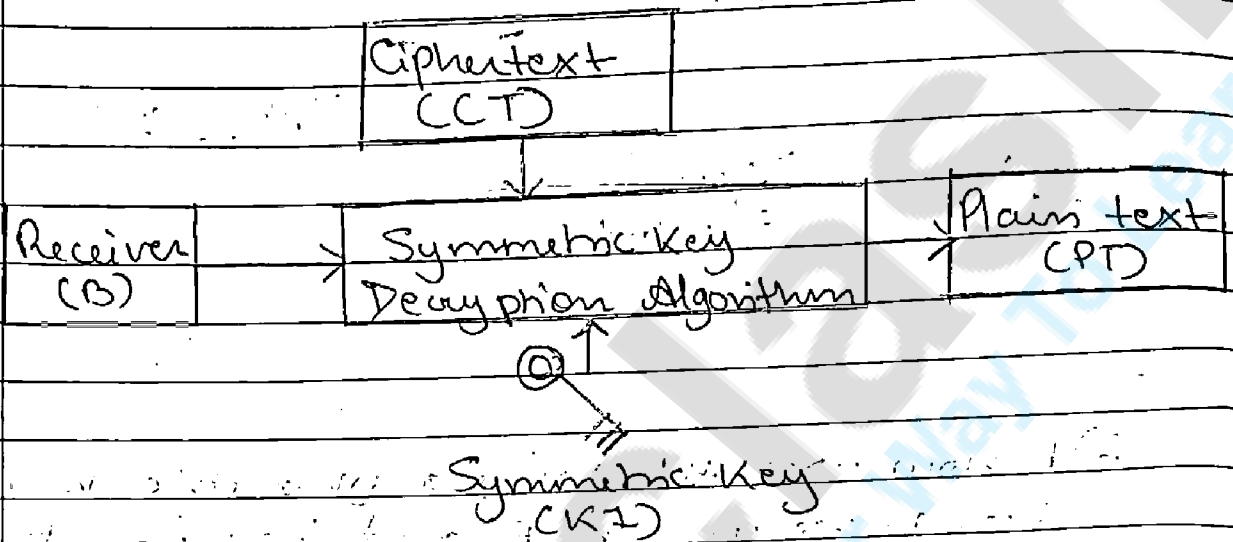 Ciphertext
(CCT)
Receiver
(B)
Symmetric Key
Decryption Algorithm
Plain text
(PT)
Symmetric Key
(K1)
Way To Lear